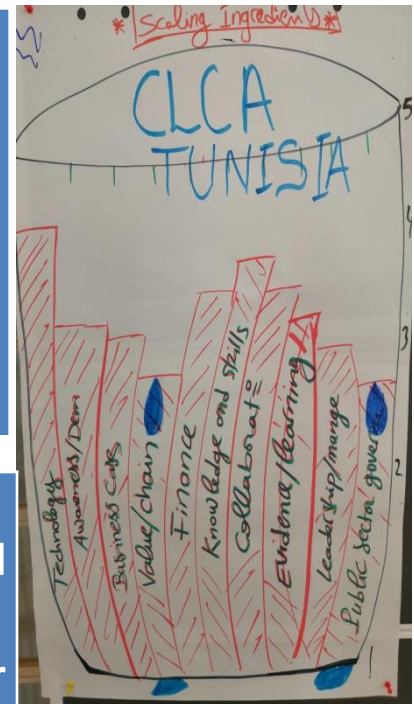 * Scaling Ingredients *
CLCA
TUNISIA
5
4
3
2
1
Technology
Awareness/Dem
Business Cases
Value/chain
Finance
Knowledge and skills
Collaborat
Evidence/learning
Leadership/mange
Public sector govern